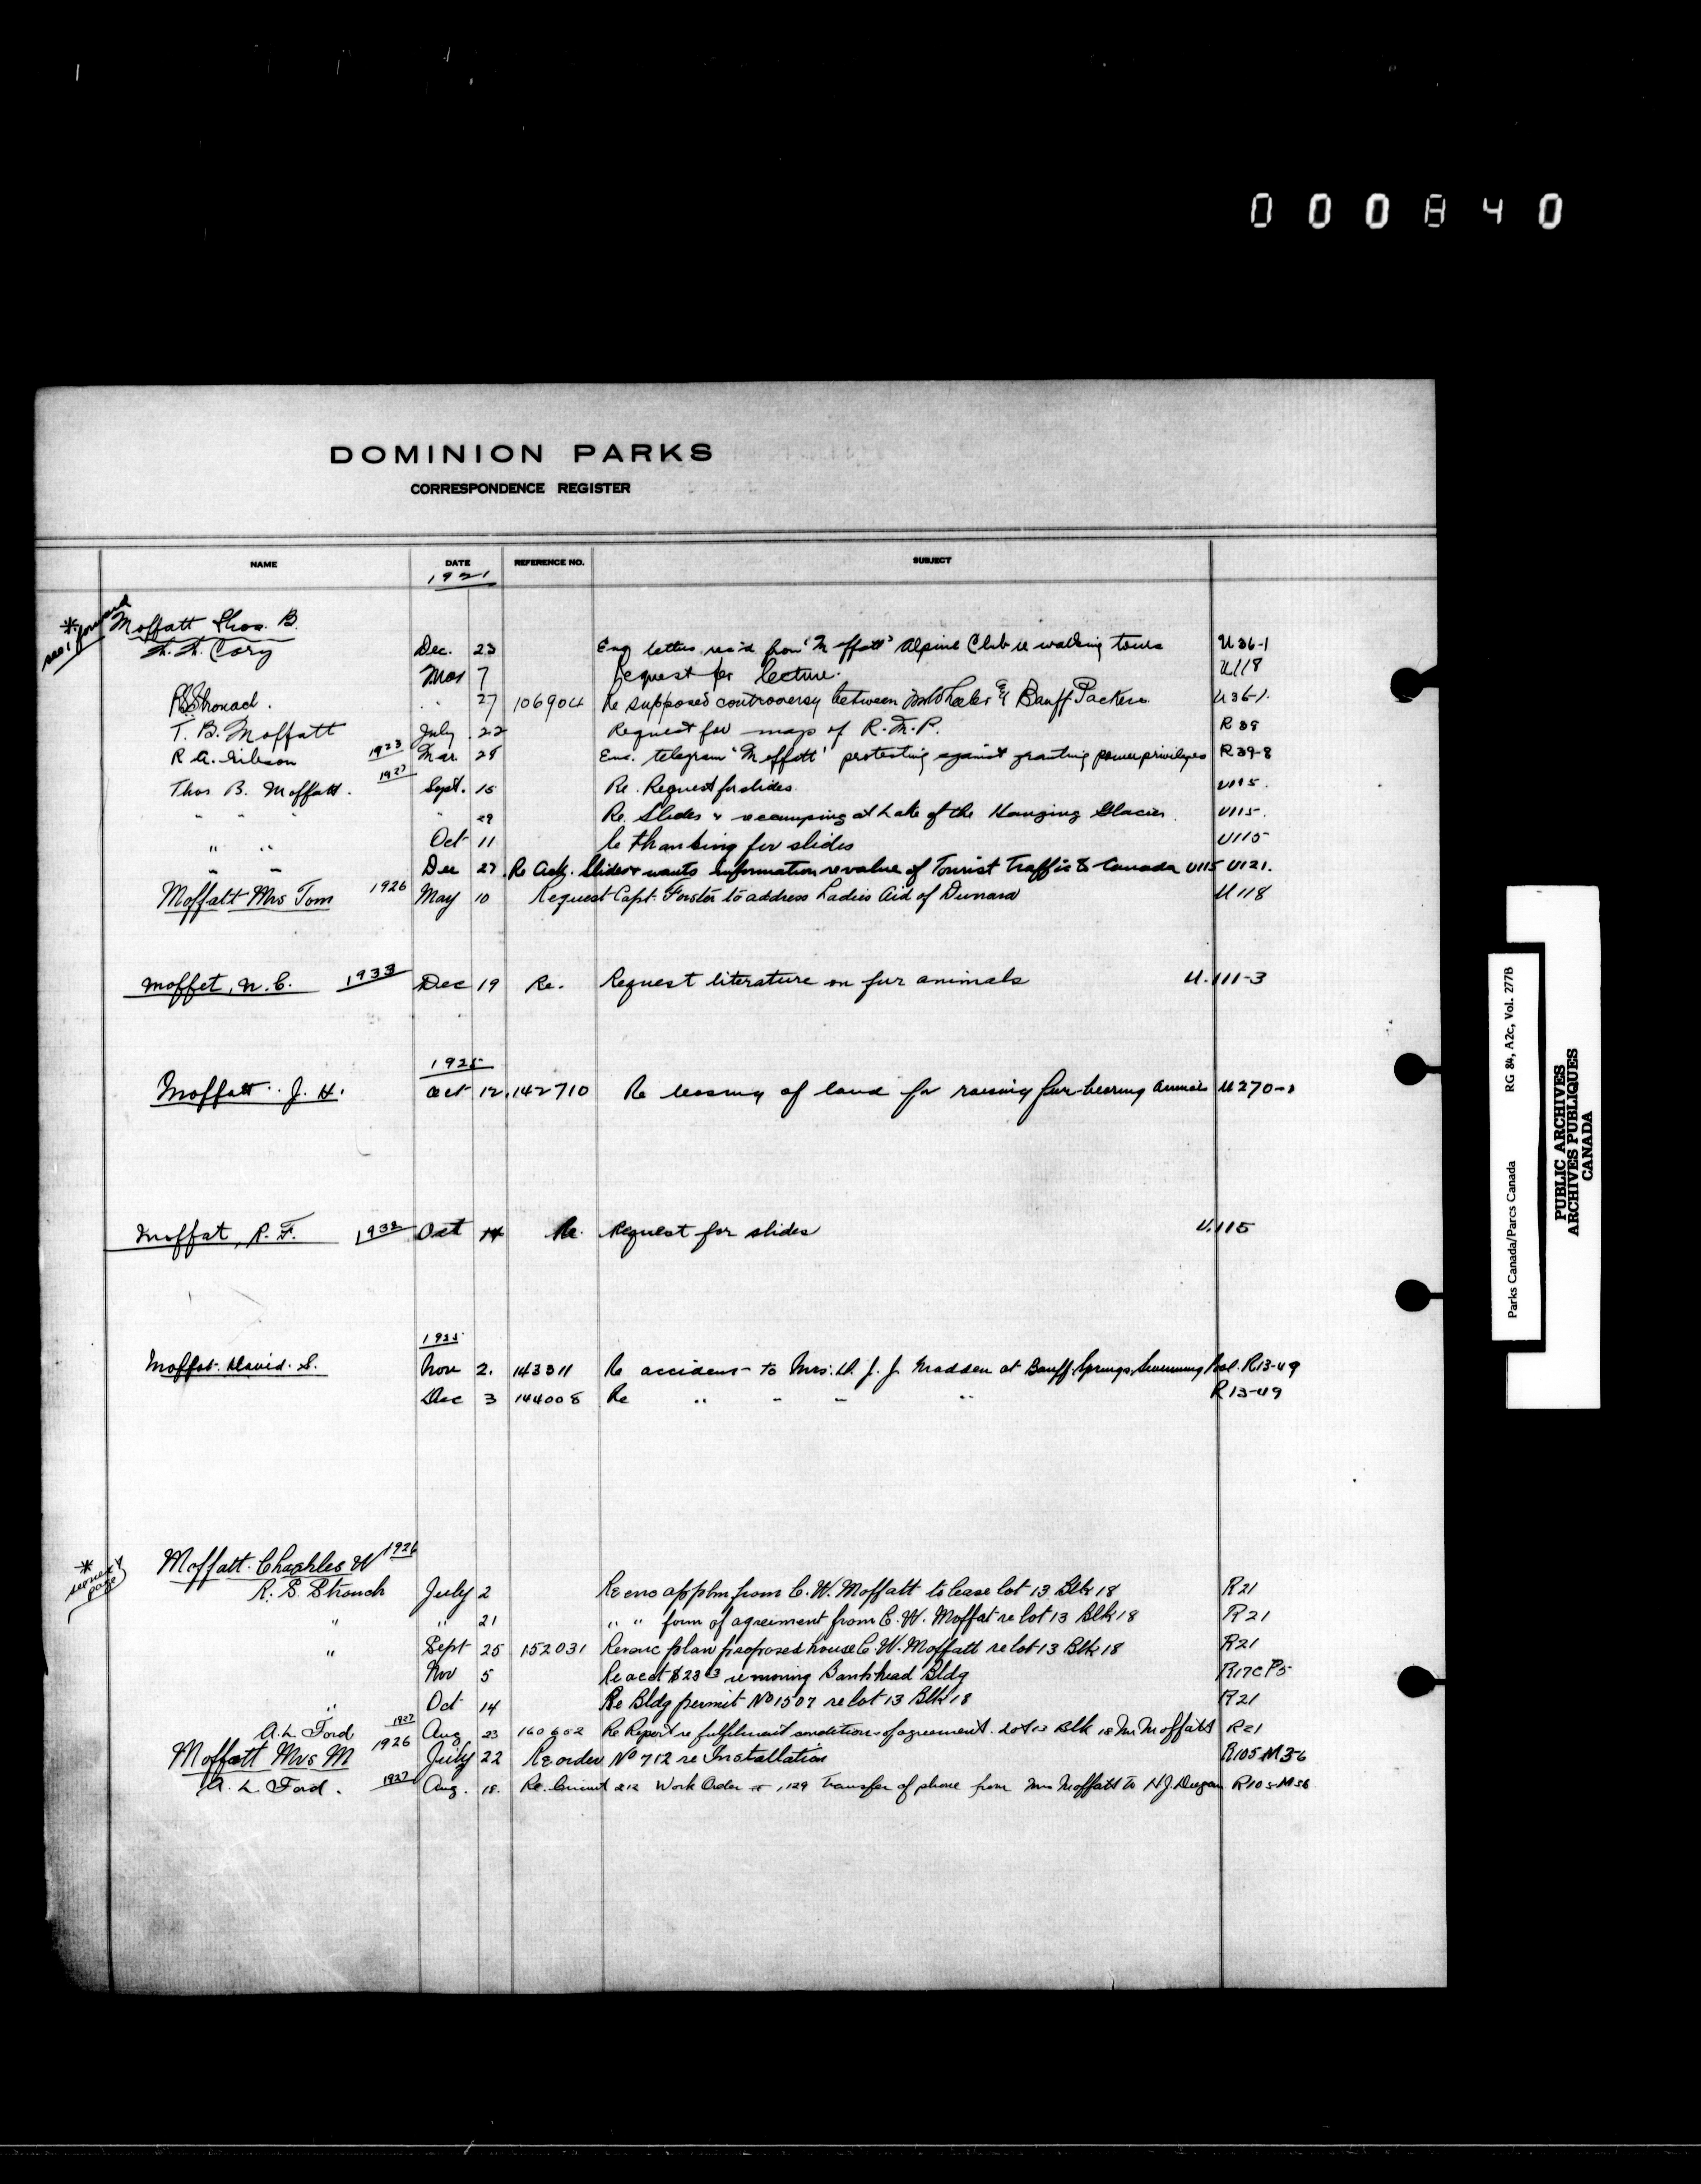 000840
DOMINION PARKS
CORRESPONDENCE REGISTER
NAME DATE REFERENCE NO. SUBJECT
1921
* Moffatt Thos. B.
Cory Dec. 23 Enq letter rec'd from "Moffatt" Alpine Club re walking tours U36-1
Mar 7 Request for lecture. U118
27 106904 Re supposed controversy between & Banff Packers U36-1.
T. B. Moffatt July 22 Request for map of R.M.P. R39
R A. Gibson 1923 Mar. 28 Enc. telegram "Moffatt" protesting against granting power privileges R39-8
Thos B. Moffatt. 1927 Sept. 15 Re. Request for slides. U115.
" " " " 29 Re. Slides & at Lake of the Hanging Glacier. U115.
" " Oct 11 Re thanking for slides U115
" " Dec 27 Re Ack. Slides & wants information re value of Tourist Traffic to Canada U115 U121.
Moffatt Mrs Tom 1926 May 10 Request Capt. Forster to address Ladies Aid of U118
Moffet, N. C. 1933 Dec 19 Re. Request literature on fur animals U.111-3
1925
Moffatt. J. H. Oct 12. 142710 Re leasing of land for raising fur-bearing animals U270-1
Moffat, R. F. 1932 Oct 14 Re. Request for slides U.115
1925
Moffat. David. S. Nov 2. 143311 Re accident to Mrs. D. J. J. Madden at Banff Springs Swimming Pool. R13-49
Dec 3 144008 Re " " " " R13-49
* see next page
Moffatt. Chaphles W 1926
R. S. Stronach July 2 Re enc appln from C. W. Moffatt to lease lot 13 Blk 18 R21
" " 21 " " form of agreement from C. W. Moffat re lot 13 Blk 18 R21
" Sept 25 152031 Re enc plan proposed house C. W. Moffatt re lot 13 Blk 18 R21
Nov 5 Re acct $23 removing Bankhead Bldg R17CP5
" Oct 14 Re Bldg permit No 1507 re lot 13 Blk 18 R21
A. L. Ford 1927 Aug 23 160652 Re Report re fulfilment conditions of agreement. Lot 13 Blk 18 Mr Moffatt R21
Moffatt Mrs M 1926 July 22 Re order No 712 re Installation R105-M36
A. L. Ford. 1927 Aug. 18. Re. Circuit 212 Work Order 129 Transfer of phone from Mrs Moffatt to N J. R105-M36
Parks Canada/Parcs Canada RG 84, A2c, Vol. 277B
PUBLIC ARCHIVES
ARCHIVES PUBLIQUES
CANADA